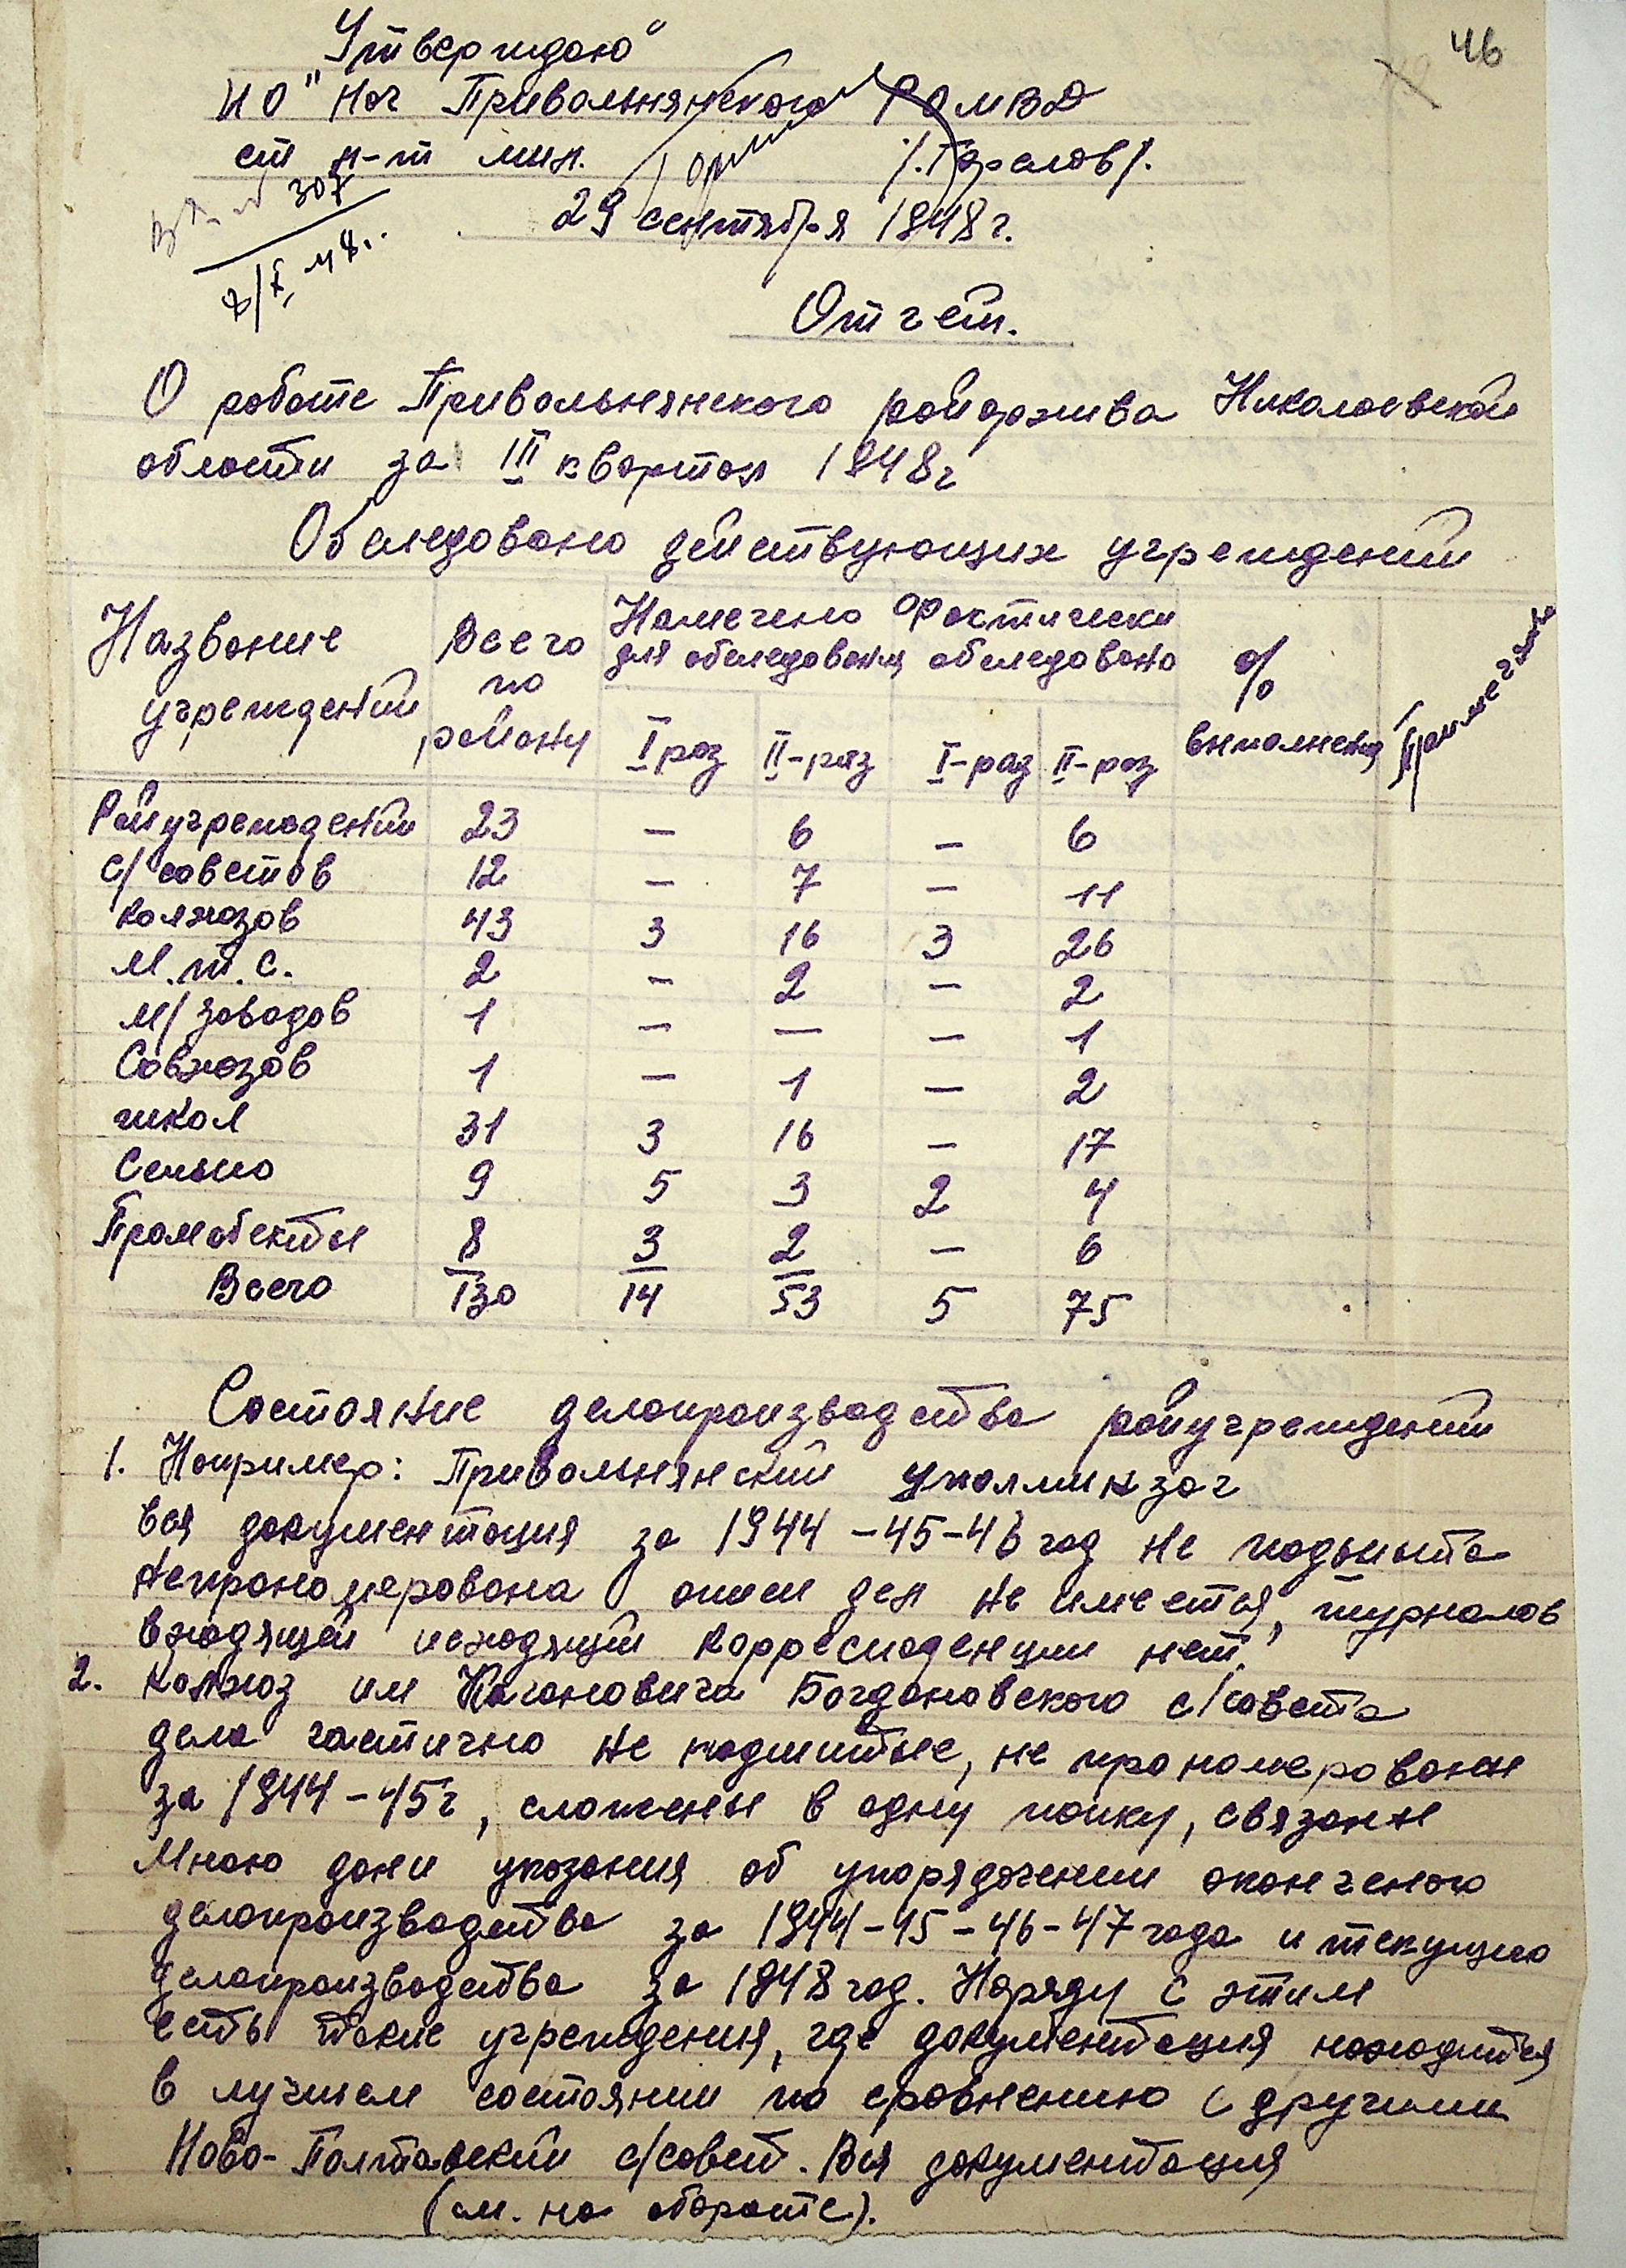 46
"Утверждаю"
ИО "Нач Привольнянского РОМВД
ст л-т мил. /.Горелов/.
Вх. № 307
8/X 48.
29 сентября 1948 г.
Отчет.
О работе Привольнянского райархива Николаевской
области за III квартал 1948 г
Обследовано действующих учреждений
Название учреждений Всего по району Намечено для обследования Фактически обследовано % выполнения Примечание
I раз II-раз I-раз II-раз
Райучреждений 23 — 6 — 6
с/советов 12 — 7 — 11
колхозов 43 3 16 3 26
М.т.с. 2 — 2 — 2
м/заводов 1 — — — 1
Совхозов 1 — 1 — 2
школ 31 3 16 — 17
Сельпо 9 5 3 2 4
Промобекты 8 3 2 — 6
Всего 130 14 53 5 75
Состояние делопроизводства райучреждений
1. Например: Привольнянский уполминзаг
вся документация за 1944-45-46 год не подшита
непрономерована описи дел не имеется, журналов
входящей исходящий корресподенции нет.
2. Колхоз им Кагановича Богдановского с/совета
дела частично не подшитые, не прономерованы
за 1944-45 г, сложены в одну папку, связаны
Мною дани указания об упорядочении оконченою
делопроизводства за 1944-45-46-47 года и текущею
делопроизводства за 1948 год. Наряду с этим
есть такие учреждения, где документация находится
в лучшем состоянии по сравнению с другими
Ново-Полтавский с/совет. Вся документация
(см. на обороте).